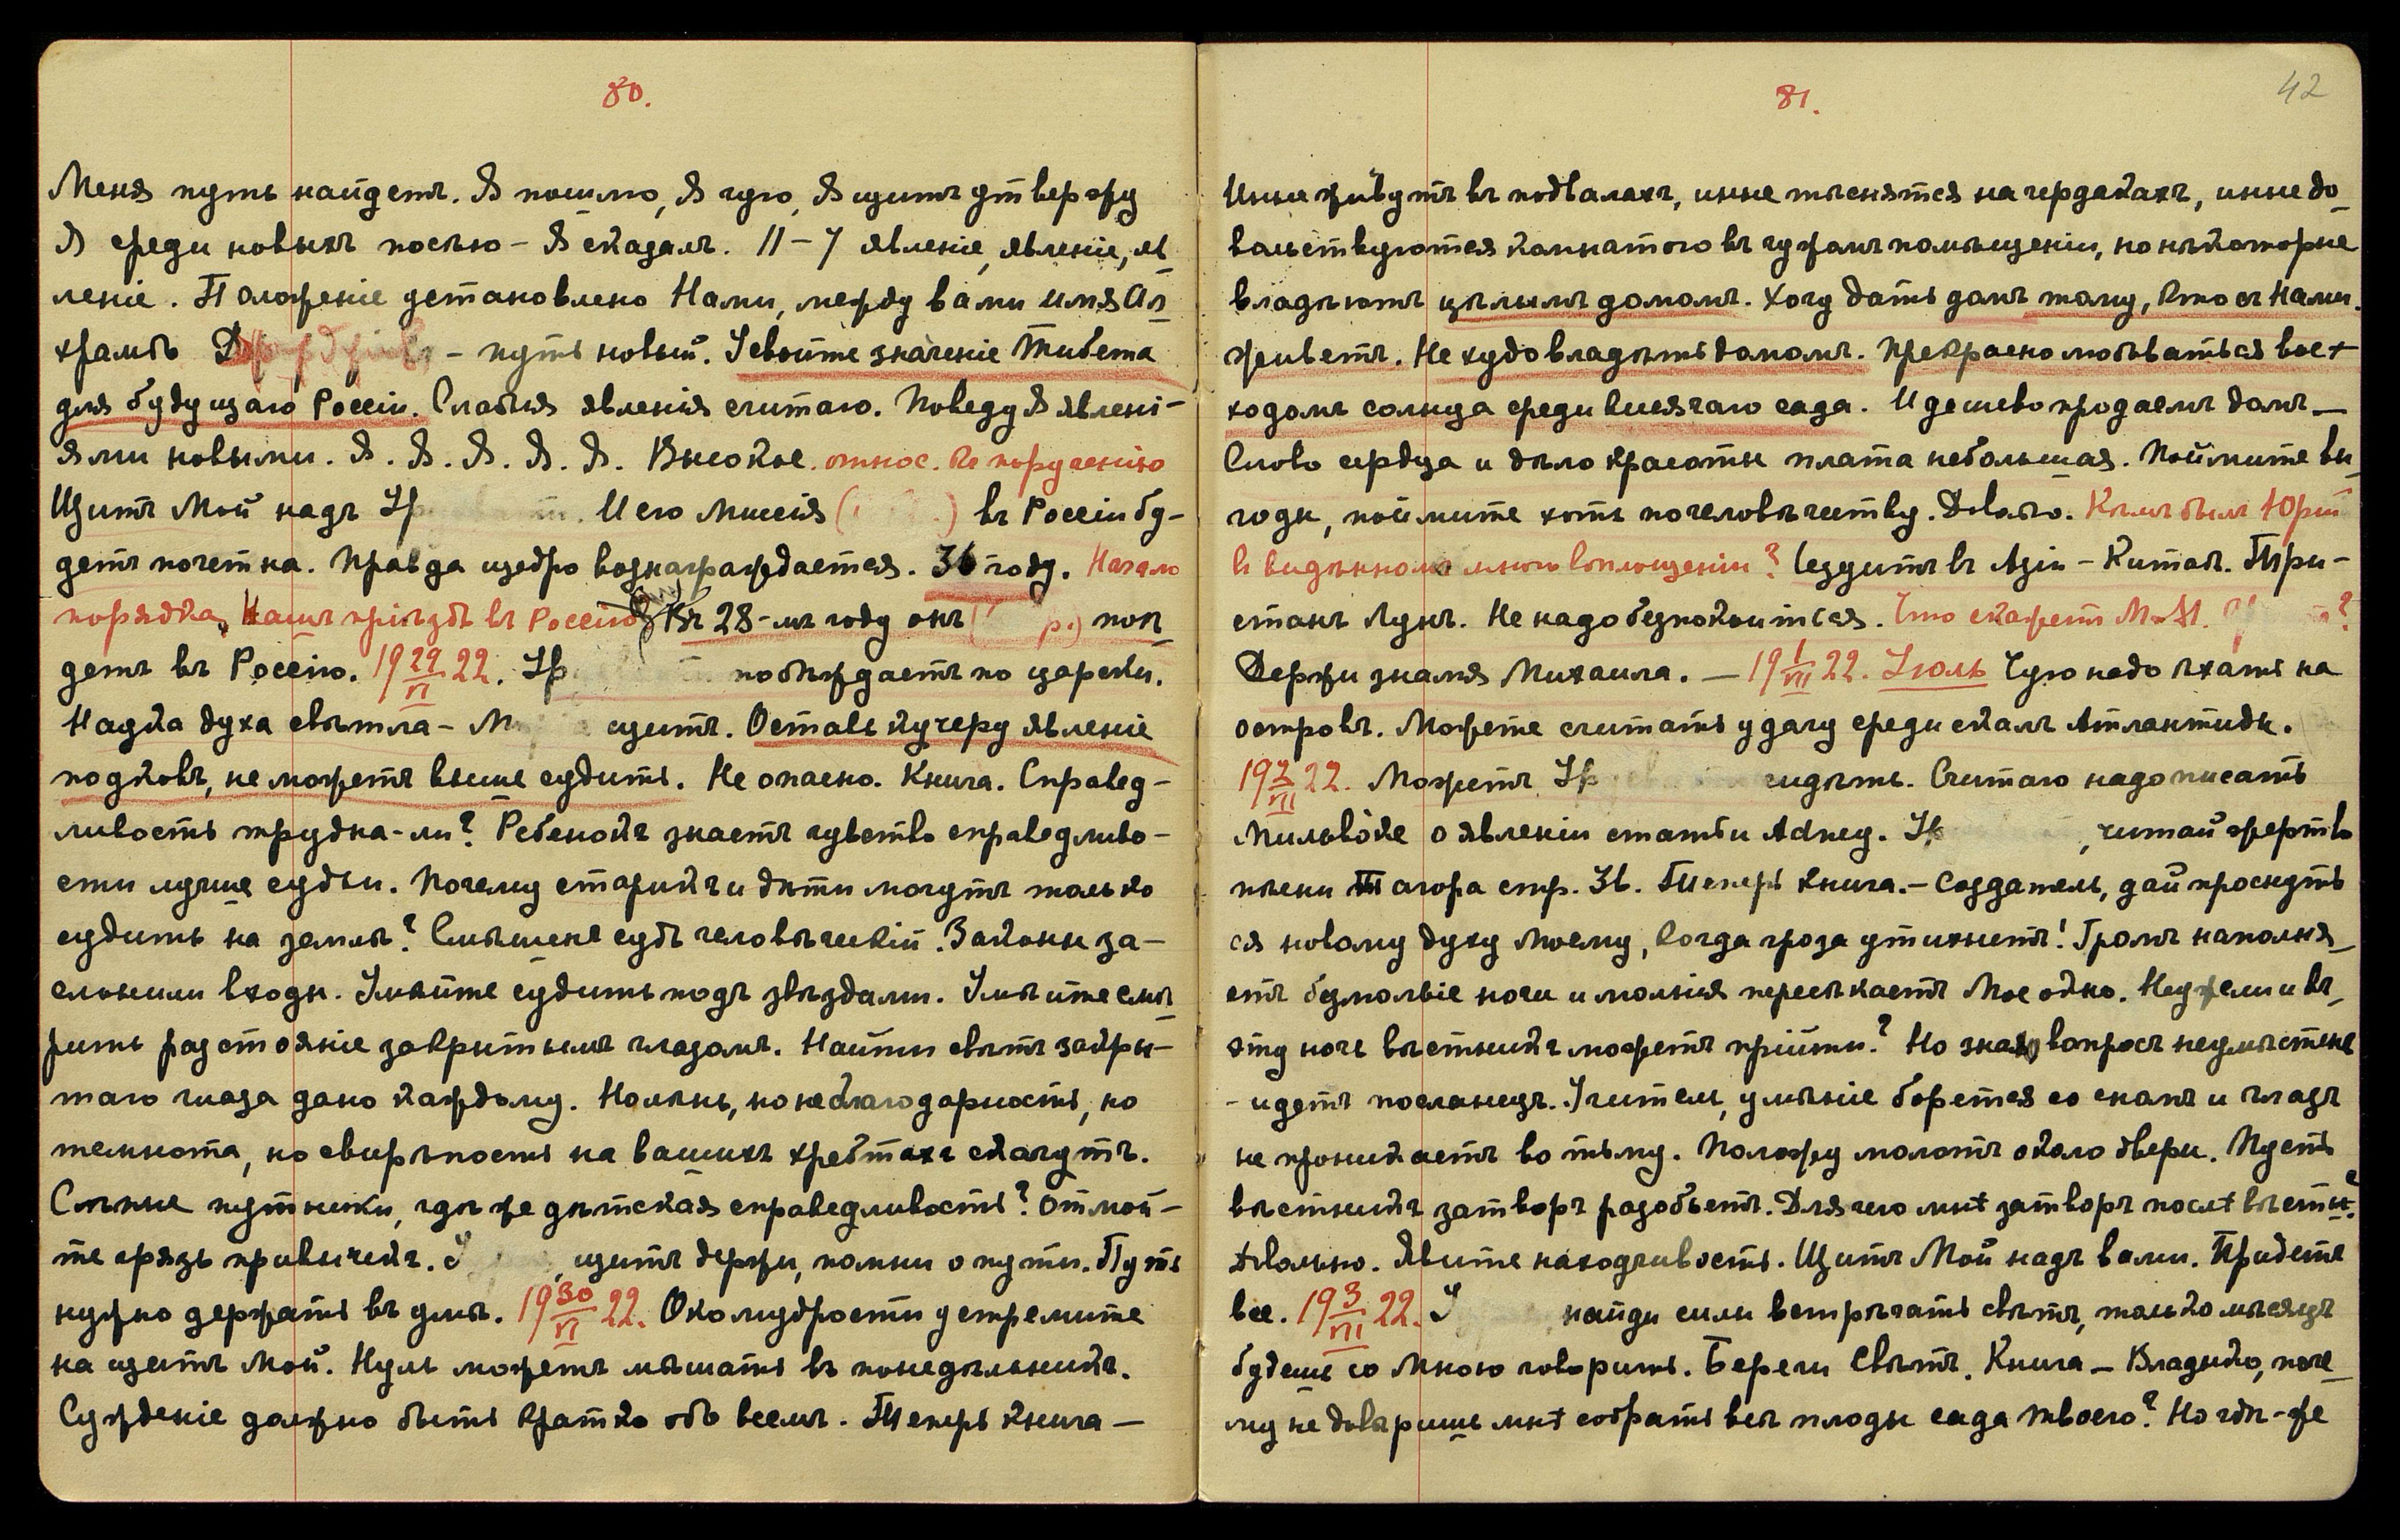 80.
Меня путь найдетъ. Я пошлю, Я чую, Я щитъ утвержу
Я среди новыхъ посѣю – Я сказалъ. 11–7 явленіе, явленіе, яв
леніе. Положеніе установлено Нами, между вами имя Ал
храмъ – путь новый. Усвойте значеніе Тибета
для будущаго Россіи. Слабыя явленія считаю. Поведу Я явлені-
ями новыми. Я. Я. Я. Я. Я. Высокое. относ. къ порученію
Щитъ Мой надъ Ур И его миссія ( ) въ Россіи бу-
детъ почетна. Правда щедро вознаграждается. 36 году. Начало
порядка, Нашъ пріѣздъ въ Россію Въ 28-мъ году онъ ( р.) поѣ
детъ въ Россію. 19 29/VI 22. Ур побѣждаетъ по царски.
Наука духа свѣтла – М щитъ. Оставь кучеру явленіе
подковъ, не можетъ выше судить. Не опасно. Книга. Справед-
ливость трудна-ли? Ребенокъ знаетъ чувство справедливо-
сти лучше судьи. Почему старикъ и дѣти могутъ только
судить на землѣ? Смѣшенъ судъ человѣческій. Законы за-
слонили входы. Умѣйте судить подъ звѣздами. Умѣйте смѣ
рить разстояніе закрытымъ глазомъ. Найти свѣтъ закры-
таго глаза дано каждому. Но лѣнь, но неблагодарность, но
темнота, но свирѣпость на вашихъ хребтахъ скачутъ.
Слѣпые путники, гдѣ же дѣтская справедливость? Отмой-
те грязь привычекъ. У , щитъ держи, помни о пути. Путь
нужно держать въ умѣ. 19 30/VI 22. Око мудрости устремите
на щитъ Мой. Нуль можетъ мѣшать въ понедѣльникъ.
Сужденіе должно быть кратко объ всемъ. Теперь книга –
81.
42
Иные живутъ въ подвалахъ, иные тѣснятся на чердакахъ, иные до
вольствуются комнатою въ чужомъ помѣщеніи, но нѣкоторые
владѣютъ цѣлымъ домомъ. Хочу дать домъ тому, кто съ Нами
живетъ. Не худо владѣть домомъ. Прекрасно любоваться вос+
ходомъ солнца среди висячаго сада. И дешево продаемъ домъ –
Слово сердца и дѣло красоты плата небольшая. Поймите вы
годы, поймите хоть по человѣчеству. Довѣ́ю. Кѣмъ былъ Юрій
въ видѣнномъ мною воплощеніи? Ѣздитъ въ Азіи – Китаѣ. Три-
станъ Лунъ. Не надо безпокоиться. Что скажетъ М. М.
Держи знамя Михаила. – 19 1/VII 22. Іюль Чую надо ѣхать на
островъ. Можете считать удачу среди скалъ Атлантиды.
19 2/VII 22. Можетъ Ур сидѣть. Считаю надо писать
Мильвоке о явленіи статьи Adney. Ур , читай жертво
пѣсни Тагора стр. 36. Теперь книга. – Создатель, дай проснуть
ся новому духу моему, когда гроза утихнетъ! Громъ наполня
етъ безмолвіе ночи и молнія пересѣкаетъ мое окно. Неужели и въ
эту ночь вѣстникъ можетъ прійти? Но знаю, вопросъ неумѣстенъ
– идетъ посланецъ. Учитель, умѣніе борется со сномъ и глазъ
не проникаетъ во тьму. Положу молотъ около двери. Пусть
вѣстникъ затворъ разобьетъ. Для чего мнѣ затворъ послѣ вѣсти?
Довольно. Явите находчивость. Щитъ Мой надъ вами. Придете
все. 19 3/VII 22. У , найди силы встрѣчать свѣтъ, только мѣсяцъ
будешь со Мною говорить. Береги Свѣтъ. Книга – Владыко, поче
му не довѣришь мнѣ собрать всѣ плоды сада твоего? Но гдѣ-же